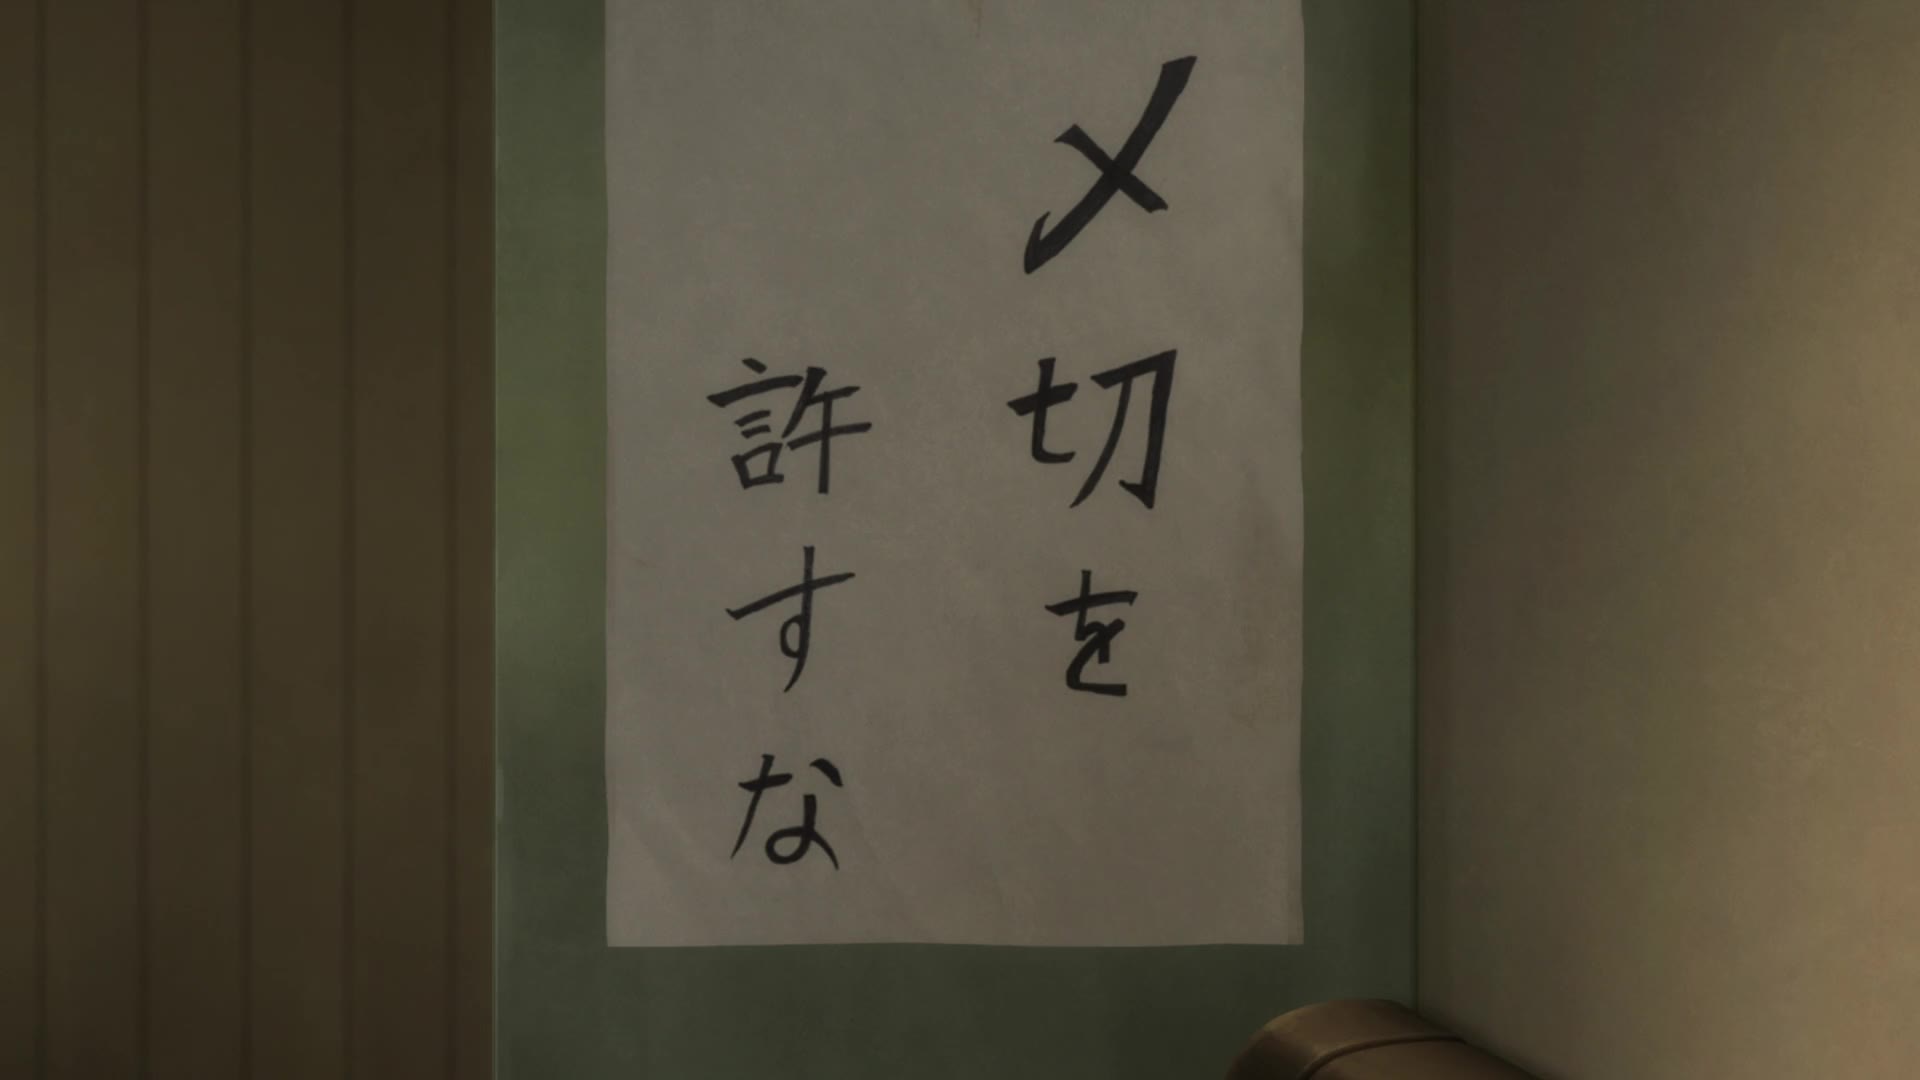 〆切を
許すな